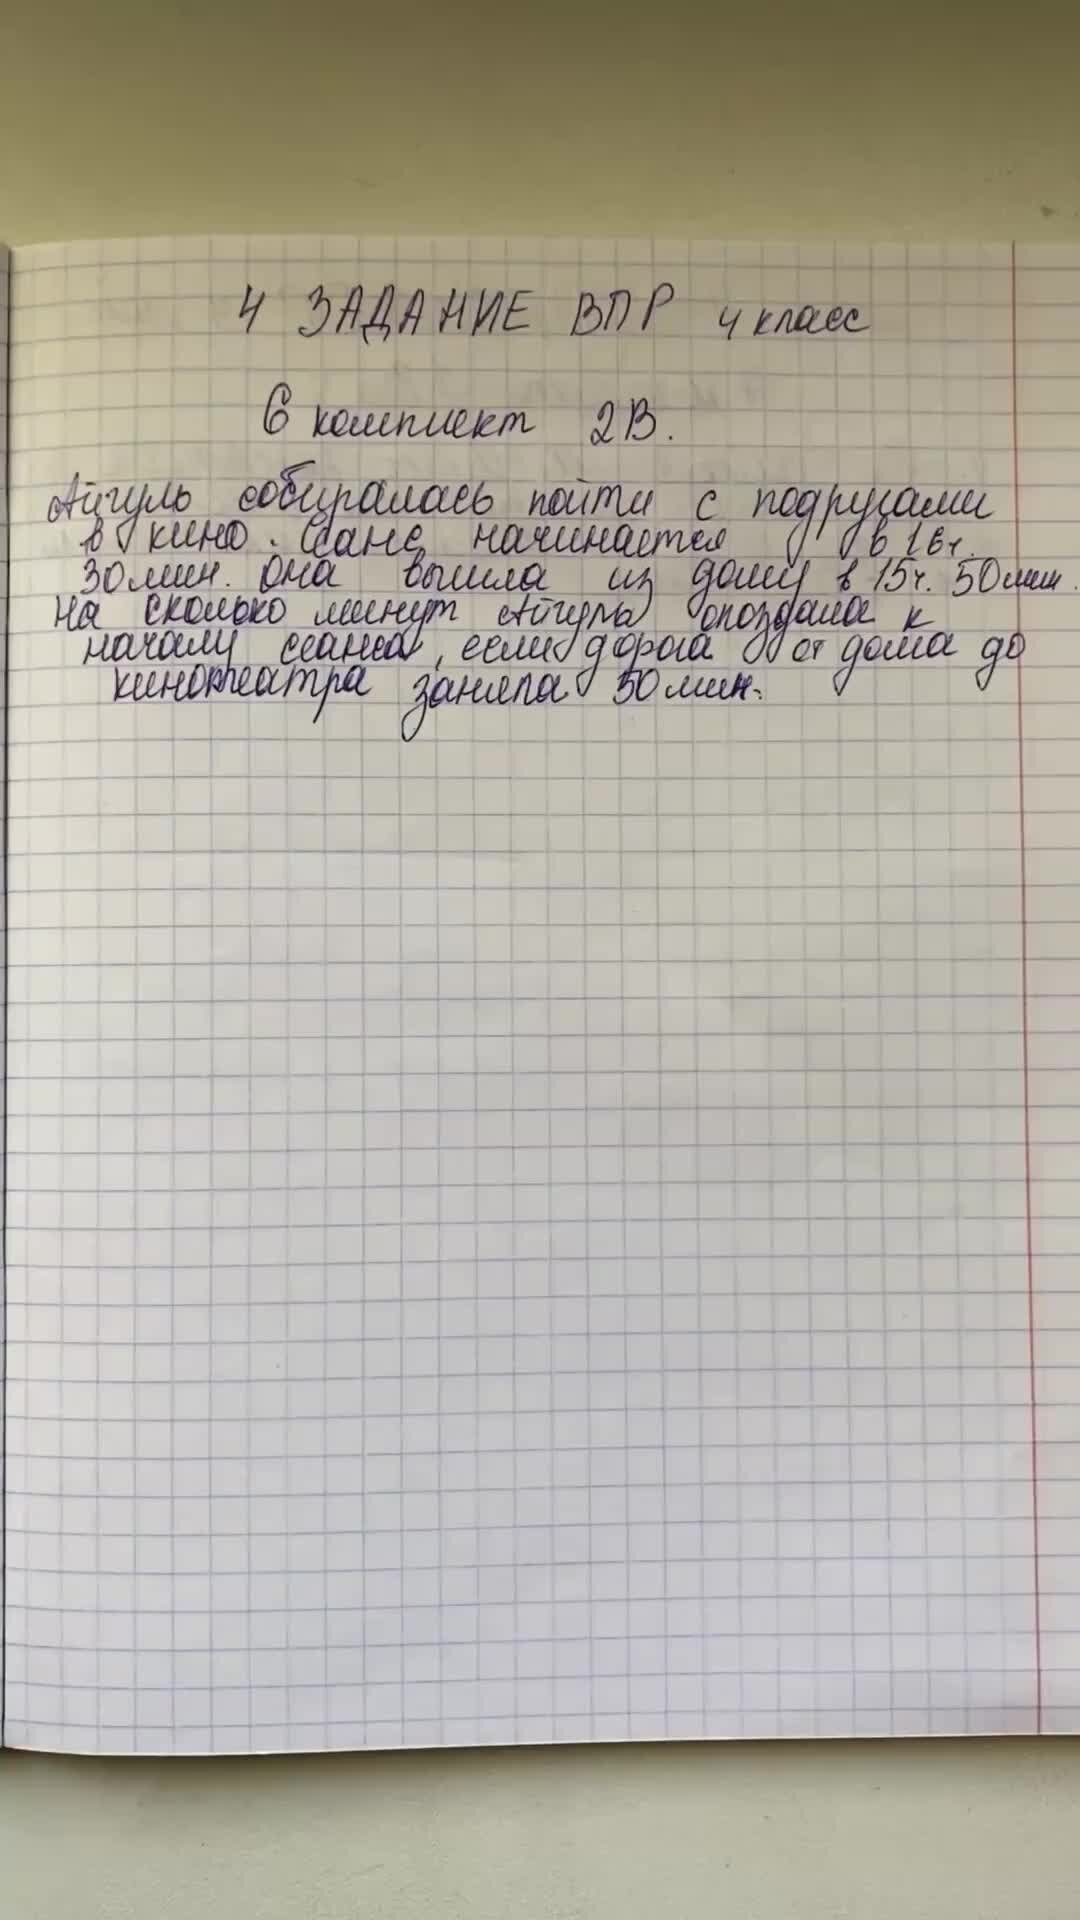 4 ЗАДАНИЕ ВПР 4 класс
6 комплект 2В.
Айгуль собиралась пойти с подругами
в кино. Сеанс начинается в 16ч.
30мин. Она вышла из дому в 15ч. 50мин.
На сколько минут Айгуль опоздала к
началу сеанса, если дорога от дома до
кинотеатра заняла 50мин.